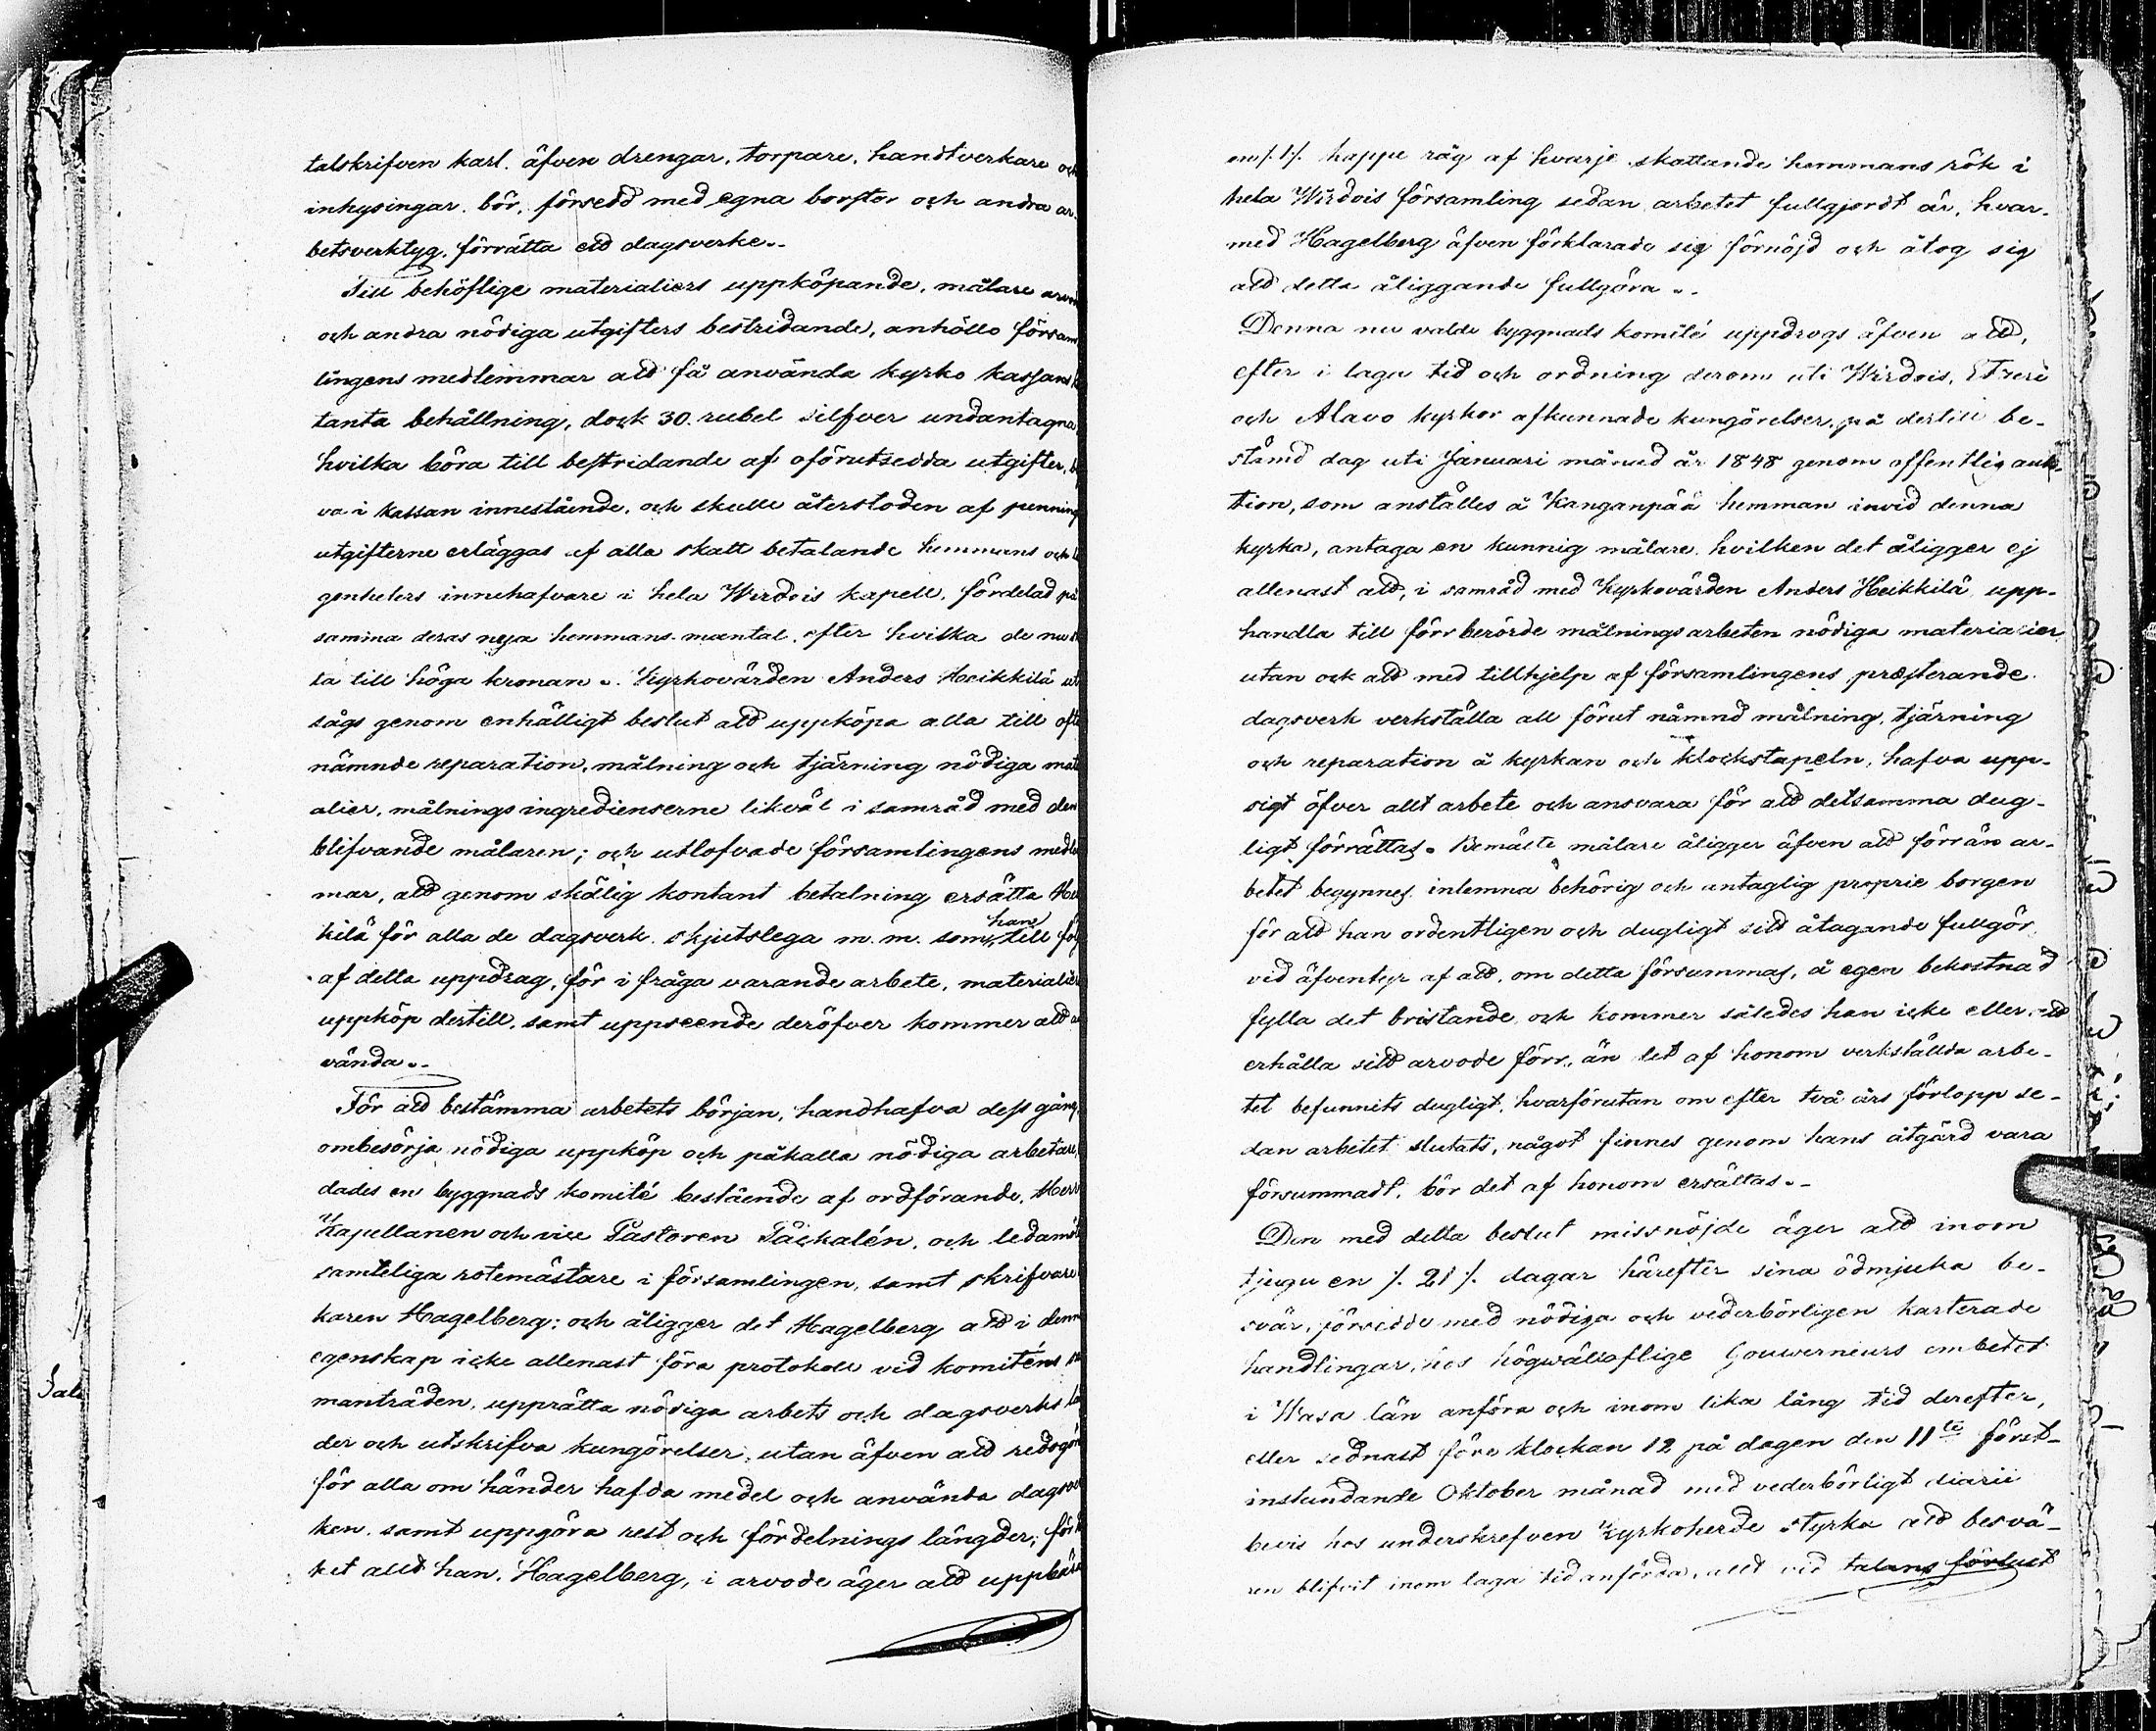 talskrifven karl. äfven drengar, torpare, handtverkare och
inhysingar. bör, försedd med egna borstor och andra ar-
betsverktyg, förrätta ett dagsverke..
Till behöflige materialiers uppköpande, målare arvode
och andra nödiga utgifters bestridande, anhöllo försam
lingens medlemmar att få använda kyrko kassans
tanta behållning, dock 30. rubel silfver undantagna
hvilka böra till bestridande af oförutsedda utgifter,
va i kassan innestående, och skulle återstoden af penning
utgifterne erläggas af alla skatt betalande hemmans och
genheters innehafvare i hela Wirdois kapell, fördelad på
samma deras nya hemmans-mantal, efter hvilka de nu
ta till höga kronan.. Kyrkovärden Anders Heikkilä ut
sågs genom enhälligt beslut att uppköpa alla till ofta
nämnde reparation, målning och tjärning nödiga mate
alier, målnings ingredienserne likväl i samråd med den
blifvande målaren; och utlofvade församlingens medle
mar, att genom skälig kontant betalning ersätta Hei
kilä för alla de dagsverk. skjutslega m. m. som han till föl
af detta uppdrag, för i fråga varande arbete, materialier
uppköp dertill, samt uppseende deröfver kommer att
vända..
För att bestämma arbetets början, handhafva dess gång,
ombesörja nödiga uppköp och påkalla nödiga arbetare,
dades en byggnads komité bestående af ordförande, Herr
Kapellanen och vice Pastoren Påskalén, och ledamöt
samteliga rotemästare i församlingen, samt skrifvare
karen Hagelberg; och åligger det Hagelberg att i denn
egenskap icke allenast föra protokoll vid komiténs
manträden, upprätta nödiga arbets och dagsverks
der och utskrifva kungörelser, utan äfven att redogör
för alla om händer hafda medel och använda dagsver
ken. samt uppgöra rest och fördelnings längder; för
ket allt han, Hagelberg, i arvode äger att uppbära
en /. 1 /. kappe råg af hvarje skattande hemmans rök i
hela Wirdois församling sedan arbetet fullgjordt är, hvar-
med Hagelberg äfven förklarade sig förnöjd och åtog sig
att detta åliggande fullgöra..
Denna nu valde byggnads komité uppdrogs äfven att,
efter i laga tid och ordning derom uti Wirdois, Etseri
och Alavo kyrkor afkunnade kungörelser, på dertill be-
stämd dag uti Januari månad år 1848 genom offentlig auk-
tion, som anställes å Kanganpää hemman invid denna
kyrka, antaga en kunnig målare. hvilken det åligger ej
allenast att, i samråd med Kyrkovärden Anders Heikkilä upp-
handla till förr berörde målningsarbeten nödiga materialier
utan ock att med tillhjelp af församlingens præsterande
dagsverk verkställa all förut nämnd målning, tjärning
och reparation å kyrkan och klockstapeln, hafva upp-
sigt öfver allt arbete och ansvara för att detsamma dug-
ligt förrättas. Bemälte målare åligger äfven att förrän ar-
betet begynnes, inlemna behörig och antaglig proprie borgen
för att han ordentligen och dugligt sitt åtagande fullgör,
vid äfventyr af att, om detta försummas, å egen bekostnad
fylla det bristande, och kommer således han icke eller att
erhålla sitt arvode förr, än det af honom verkställda arbe-
tet befunnits dugligt, hvarförutan om efter två års förlopp se-
dan arbetet slutats, något finnes genom hans åtgärd vara
försummadt, bör det af honom ersättas..
Den med detta beslut missnöjde äger att inom
tjugu en /. 21 /. dagar härefter sina ödmjuka be-
svär, försedde med nödiga och vederbörligen karterade
handlingar, hos högwällofliga Gouverneurs embetet
i Wasa län anföra och inom lika lång tid derefter,
eller sednast före klockan 12 på dagen den 11te först-
instundande Oktober månad med vederbörligt diarii
bevis hos underskrefven Kyrkoherde styrka att besvä-
ren blifvit inom laga tid anförda, allt vid talans förlust